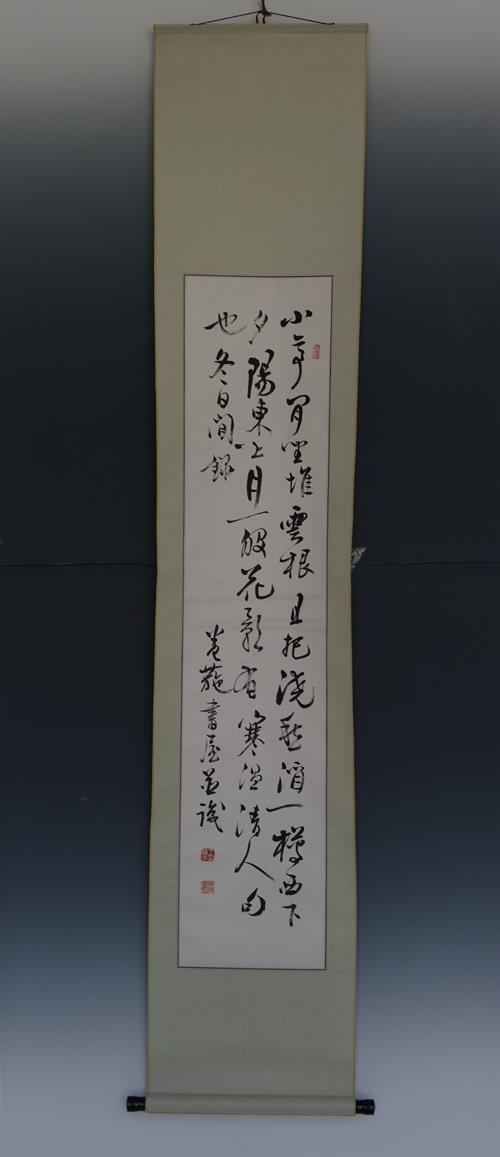 小亭閒坐堆雲根且把澆愁酒一樽西下
夕陽東上月一般花影有寒溫清人句
也冬日閒錄
卷葹書屋並識